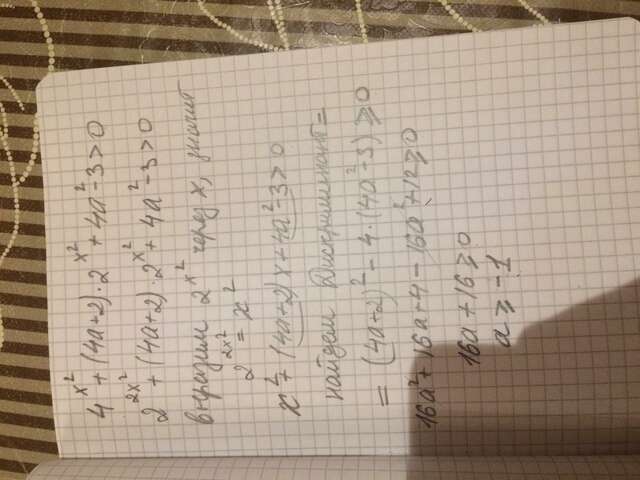 4^x² + (4a+2)·2^x² + 4a² - 3 > 0
2^2x² + (4a+2)·2^x² + 4a² - 3 > 0
выразим 2^x² через x, значит
2^2x² = x²
x² + (4a+2)x + 4a² - 3 > 0
найдем Дискриминант =
= (4a+2)² - 4·(4a² - 3) ≥ 0
16a² + 16a + 4 - 16a² + 12 ≥ 0
16a + 16 ≥ 0
a ≥ -1